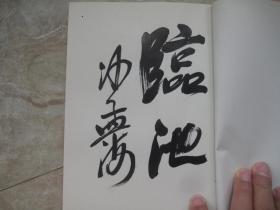 臨池
沙孟海